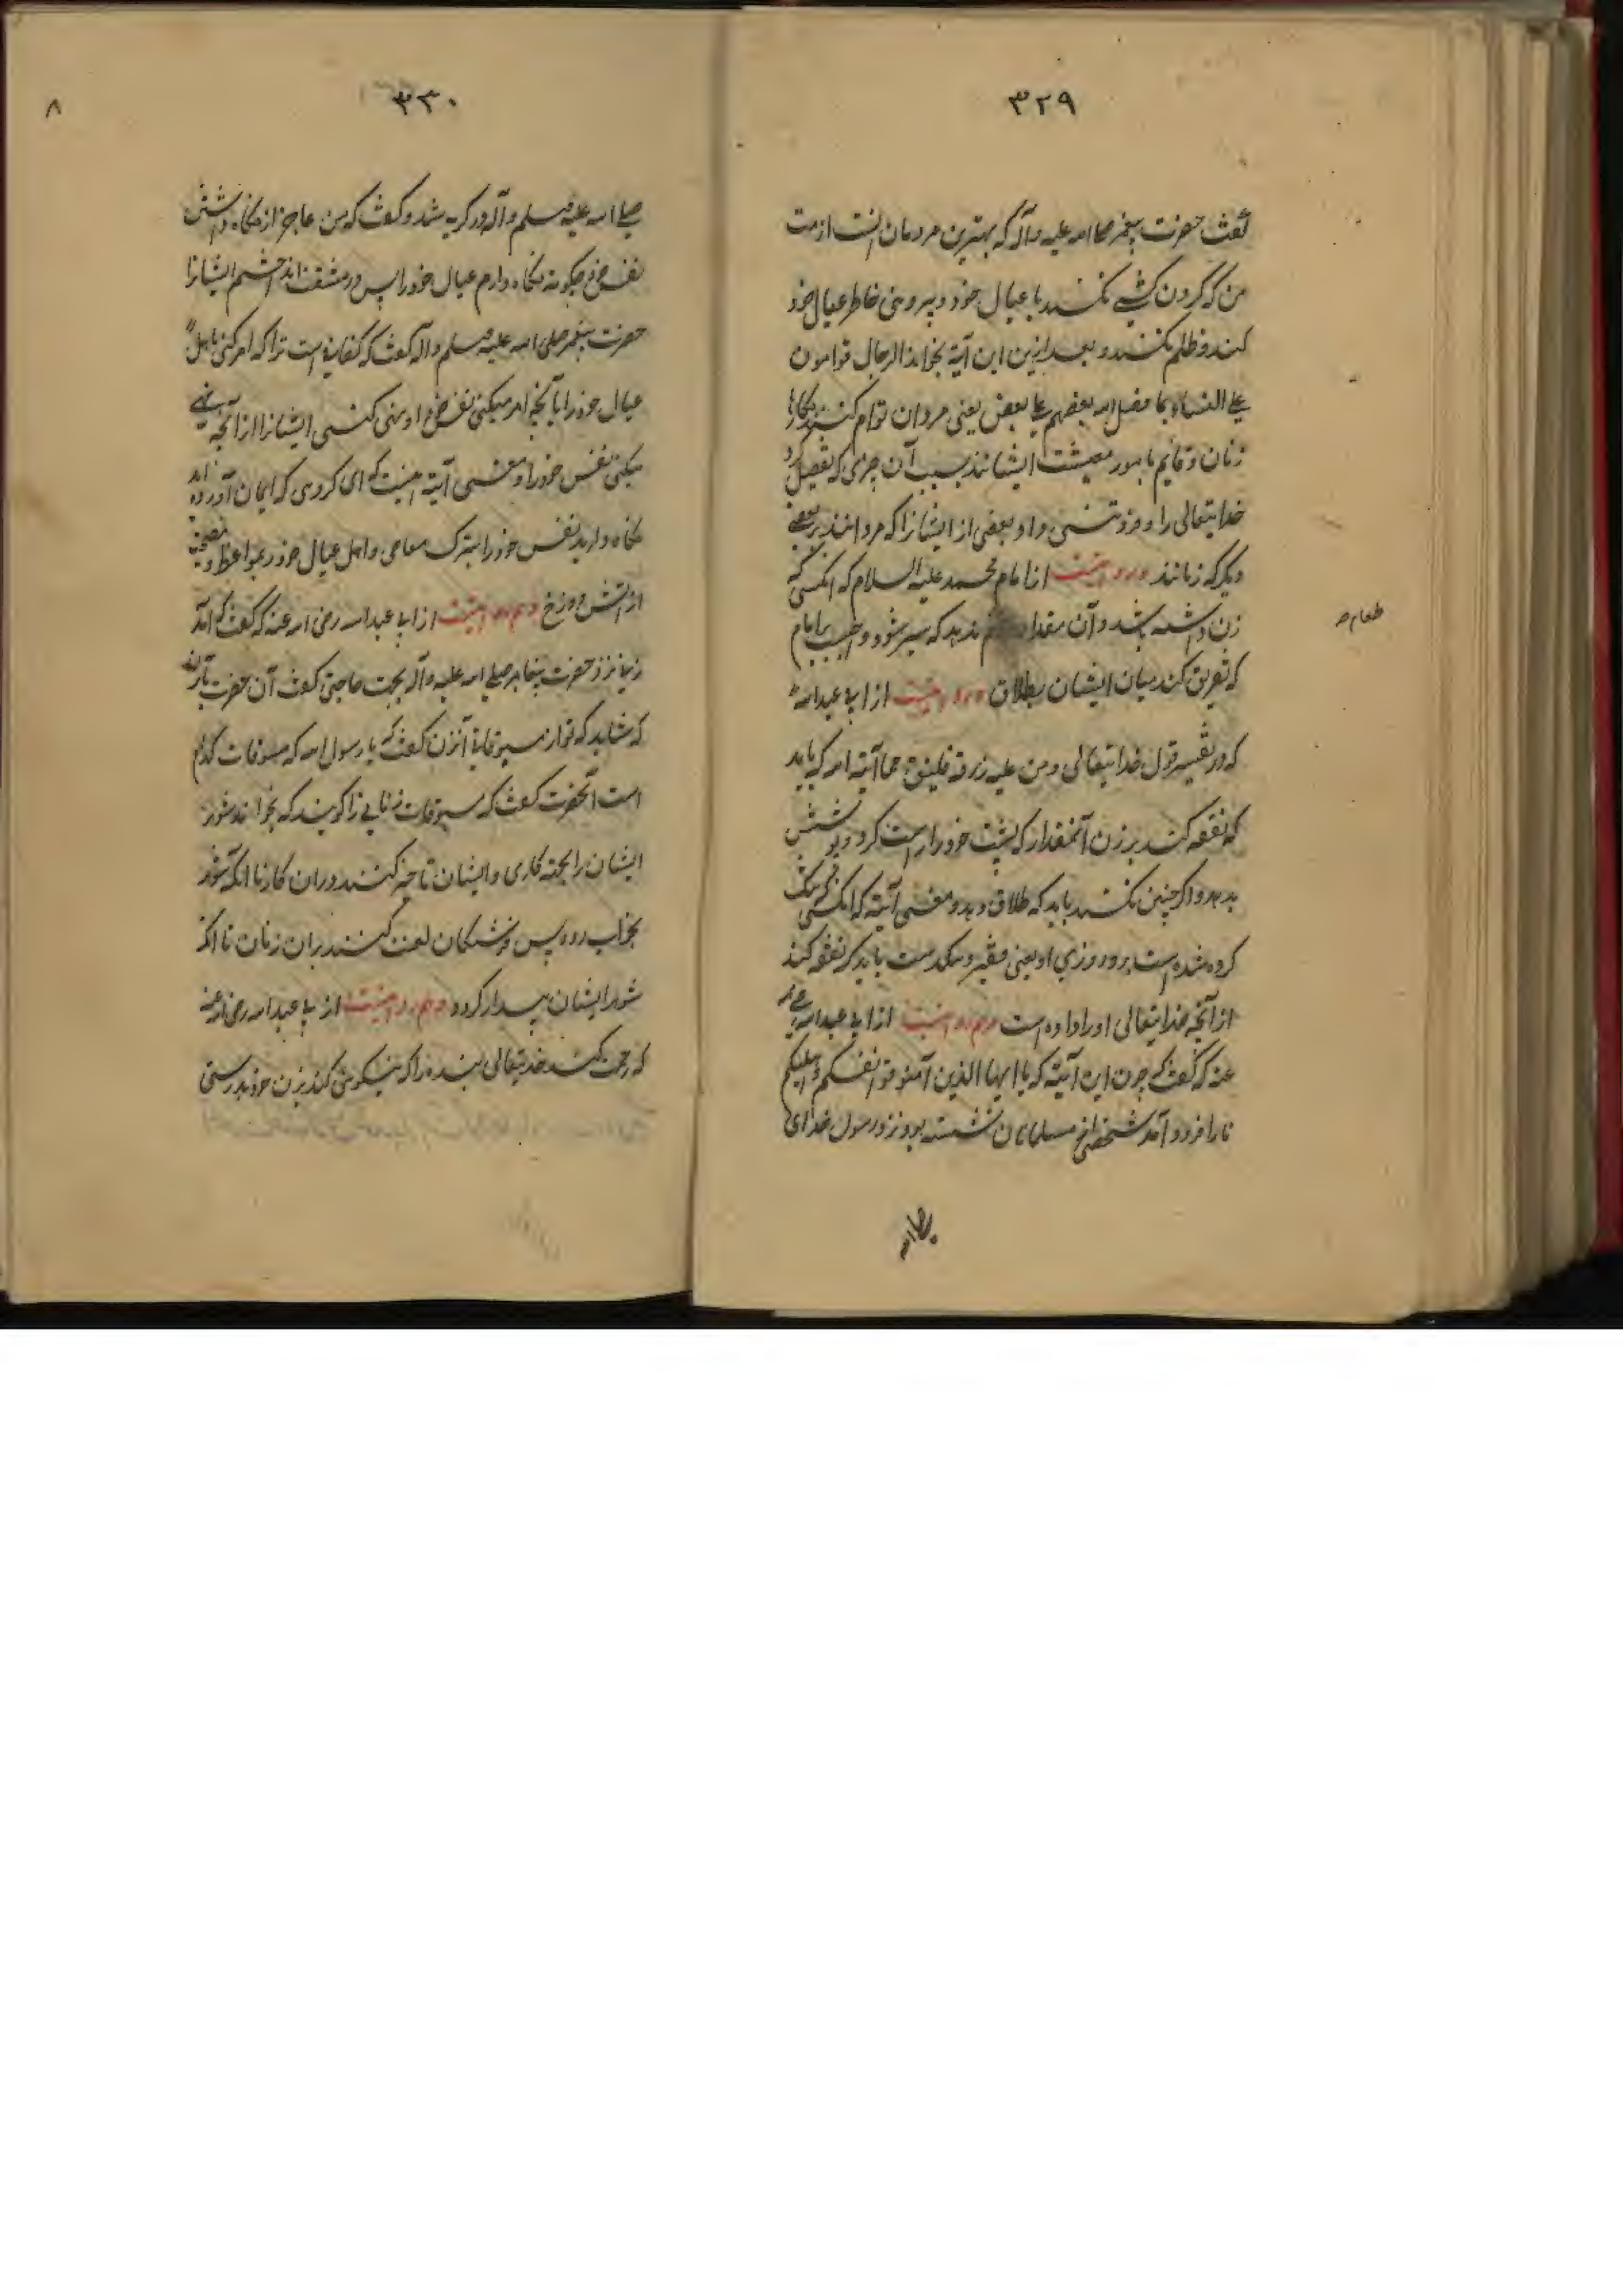 ۳۲۹
گفت حضرت پیغمبر صلی الله علیه وآله که بهترین مردمان انست از امت
من که گردن کشی نکند با عیال خود و پیروی خاطر عیال خود
کند و ظلم نکند و بعد ازین این آیة بخواند الرجال قوامون
علی النساء بما فضل الله بعضهم علی بعض یعنی مردان قوام کنند بکار
زنان و قایم بامور معیشت ایشانند بسبب آن چیزی که تفضیل کرد
خدایتعالی را و فزونی داد بعضی از ایشانرا که مردانند بر بعضی
دیگر که زنانند و مرویست از امام محمد علیه السلام که انکسی که
زن داشته باشد و آن مقدار ندهد که سیر شود واجبست بر امام
طعام ص
که تفریق کند میان ایشان بطلاق و مرویست از ابی عبدالله
که در تفسیر قول خدایتعالی ومن علیه رزقه فلینفق مما آتیه الله که باید
که نفقه کند بر زن آنمقدار که پشت خود را راست کرد و پوشش
بدهد و اگر چنین نکند باید که طلاق دهد و معنی آیة که انکسی که تنگ
کرده شده است برو روزی او یعنی فقیر و تنکدست باید که نفقه کند
از آنچه خدایتعالی او را داده است و هم مرویست از ابی عبدالله رضی الله
عنه که گفت که چون این آیة که یا ایها الذین آمنو قوا انفسکم و اهلیکم
نارا فرود آمد شخصی از مسلمانان نشسته بود نزد رسول خدای
صلی الله
۳۳۰
۸
صلی الله علیه وسلم وآله در گریه شد و گفت که من عاجز از نگاه داشتن
نفس خود چگونه نگاه دارم عیال خود را پس در مشقت انداختم ایشانرا
حضرت پیغمبر صلی الله علیه وسلم وآله گفت که کفایة است ترا که امر کنی باهل و
عیال خود را بآنچه امر میکنی نفس خود او نهی کنی ایشانرا از آنچه نهی
میکنی نفس خود را و معنی آیة اینست که ای کروهی که ایمان آورده اند
نگاه دارید نفس خود را بترک معاصی و اهل عیال خود را بمواعظ و نصیحت
از آتش دوزخ و هم مرویست از ابی عبدالله رضی الله عنه که گفت که آمد
زنی نزد حضرت پیغامبر صلی الله علیه وآله بجهت حاجتی گفت آن حضرت بآن زن
که شاید که تو از مسوفاتی آنزن گفت که یا رسول الله که مسوفات کدام
است آنحضرت گفت که مسوفات زنانی را گویند که بخواند شوهر
ایشان را بجهة کاری و ایشان تاخیر کنند در ان کار تا انکه شوهر
بخواب رود پس فرشتکان لعنت کنند بران زنان تا انکه
شوهر ایشان بیدار کردد و هم مرویست از ابی عبدالله رضی الله عنه
که رحمت کند خدایتعالی بنده را که نیکویی کند بزن خود بدرستی